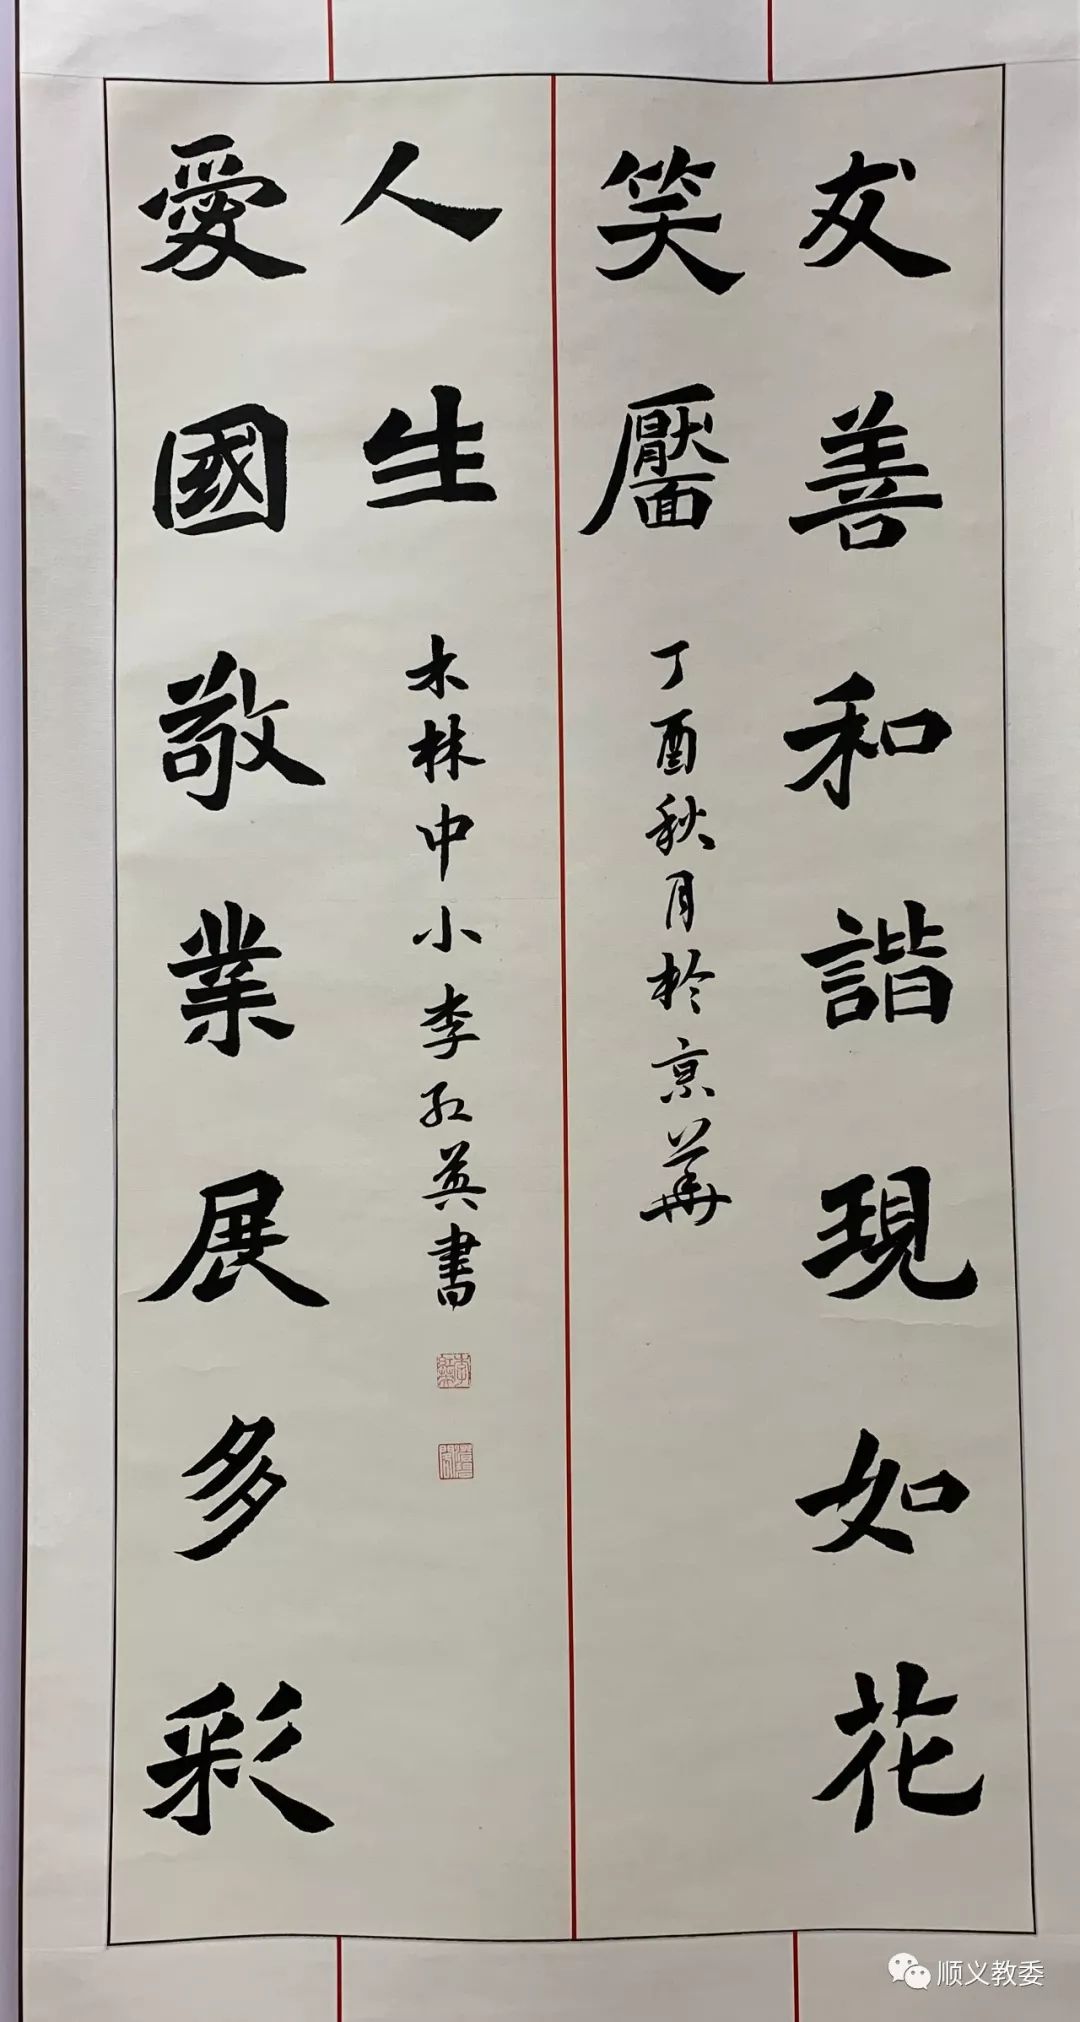 友善和諧現如花
笑靨
丁酉秋月於京華
愛國敬業展多彩
人生
木林中小李紅英書
李紅英
顺义教委